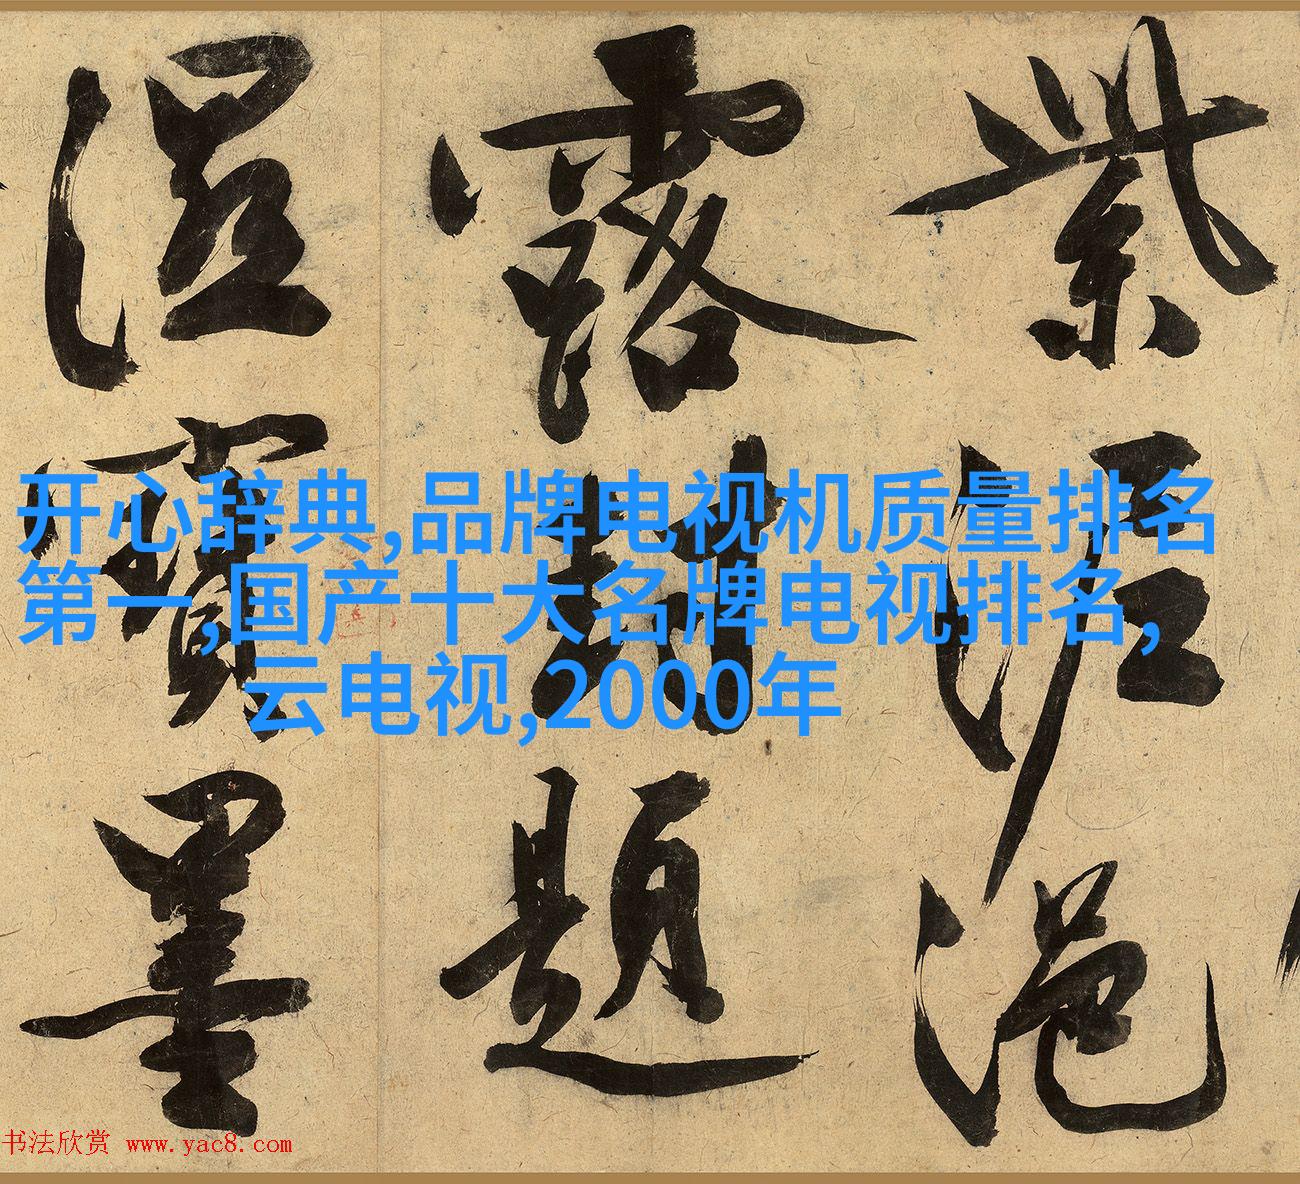 紫泥浥
露封題
濕寶墨
开心辞典,品牌电视机质量排名
第一,国产十大名牌电视排名,
云电视,2000年
书法欣赏 www.yac8.com